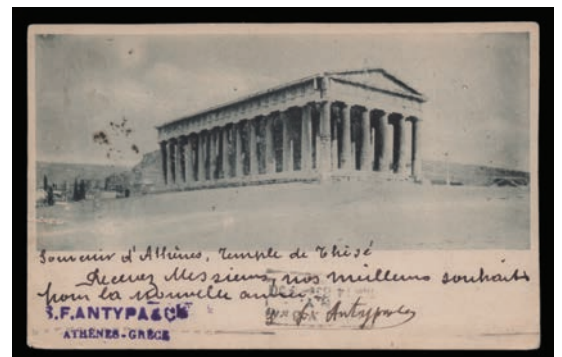 Souvenir d'Athènes, Temple de Thésé
Recevez Messieurs, nos meilleurs souhaits
pour la nouvelle année
S.F. ANTYPA & Cie
Antypas
ATHÈNES-GRÈCE